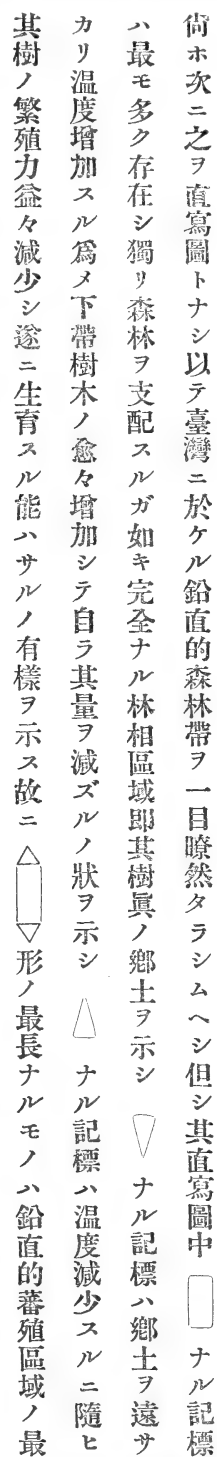 尙ホ次ニ之ヲ直寫圖トナシ以テ臺灣ニ於ケル鉛直的森林帶ヲ一目瞭然タラシムヘシ但シ其直寫圖中▯ナル記標
ハ最モ多ク存在シ獨リ森林ヲ支配スルガ如キ完全ナル林相區域卽其樹眞ノ鄕土ヲ示シ▽ナル記標ハ鄕土ヲ遠サ
カリ溫度增加スル爲メ下帶樹木ノ愈々增加シテ自ラ其量ヲ減ズルノ狀ヲ示シ△ナル記標ハ溫度減少スルニ隨ヒ
其樹ノ繁殖力益々減少シ遂ニ生育スル能ハサルノ有樣ヲ示ス故ニ△▯▽形ノ最長ナルモノハ鉛直的蕃殖區域ノ最